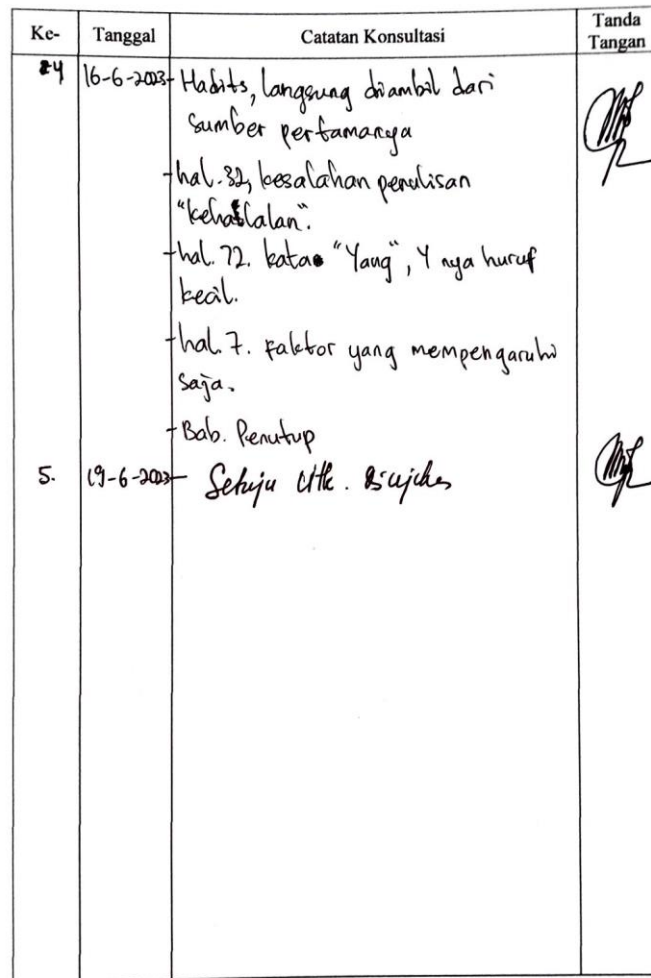 Ke- Tanggal Catatan Konsultasi Tanda Tangan
4 16-6-2023 - Hadits, langsung diambil dari
sumber pertamanya
- hal. 32, kesalahan penulisan
"kehalalan".
- hal. 72. kata "Yang", Y nya huruf
kecil.
- hal. 7. Faktor yang mempengaruhi
saja.
- Bab. Penutup
5. 19-6-2023 - Setuju utk. diujikan